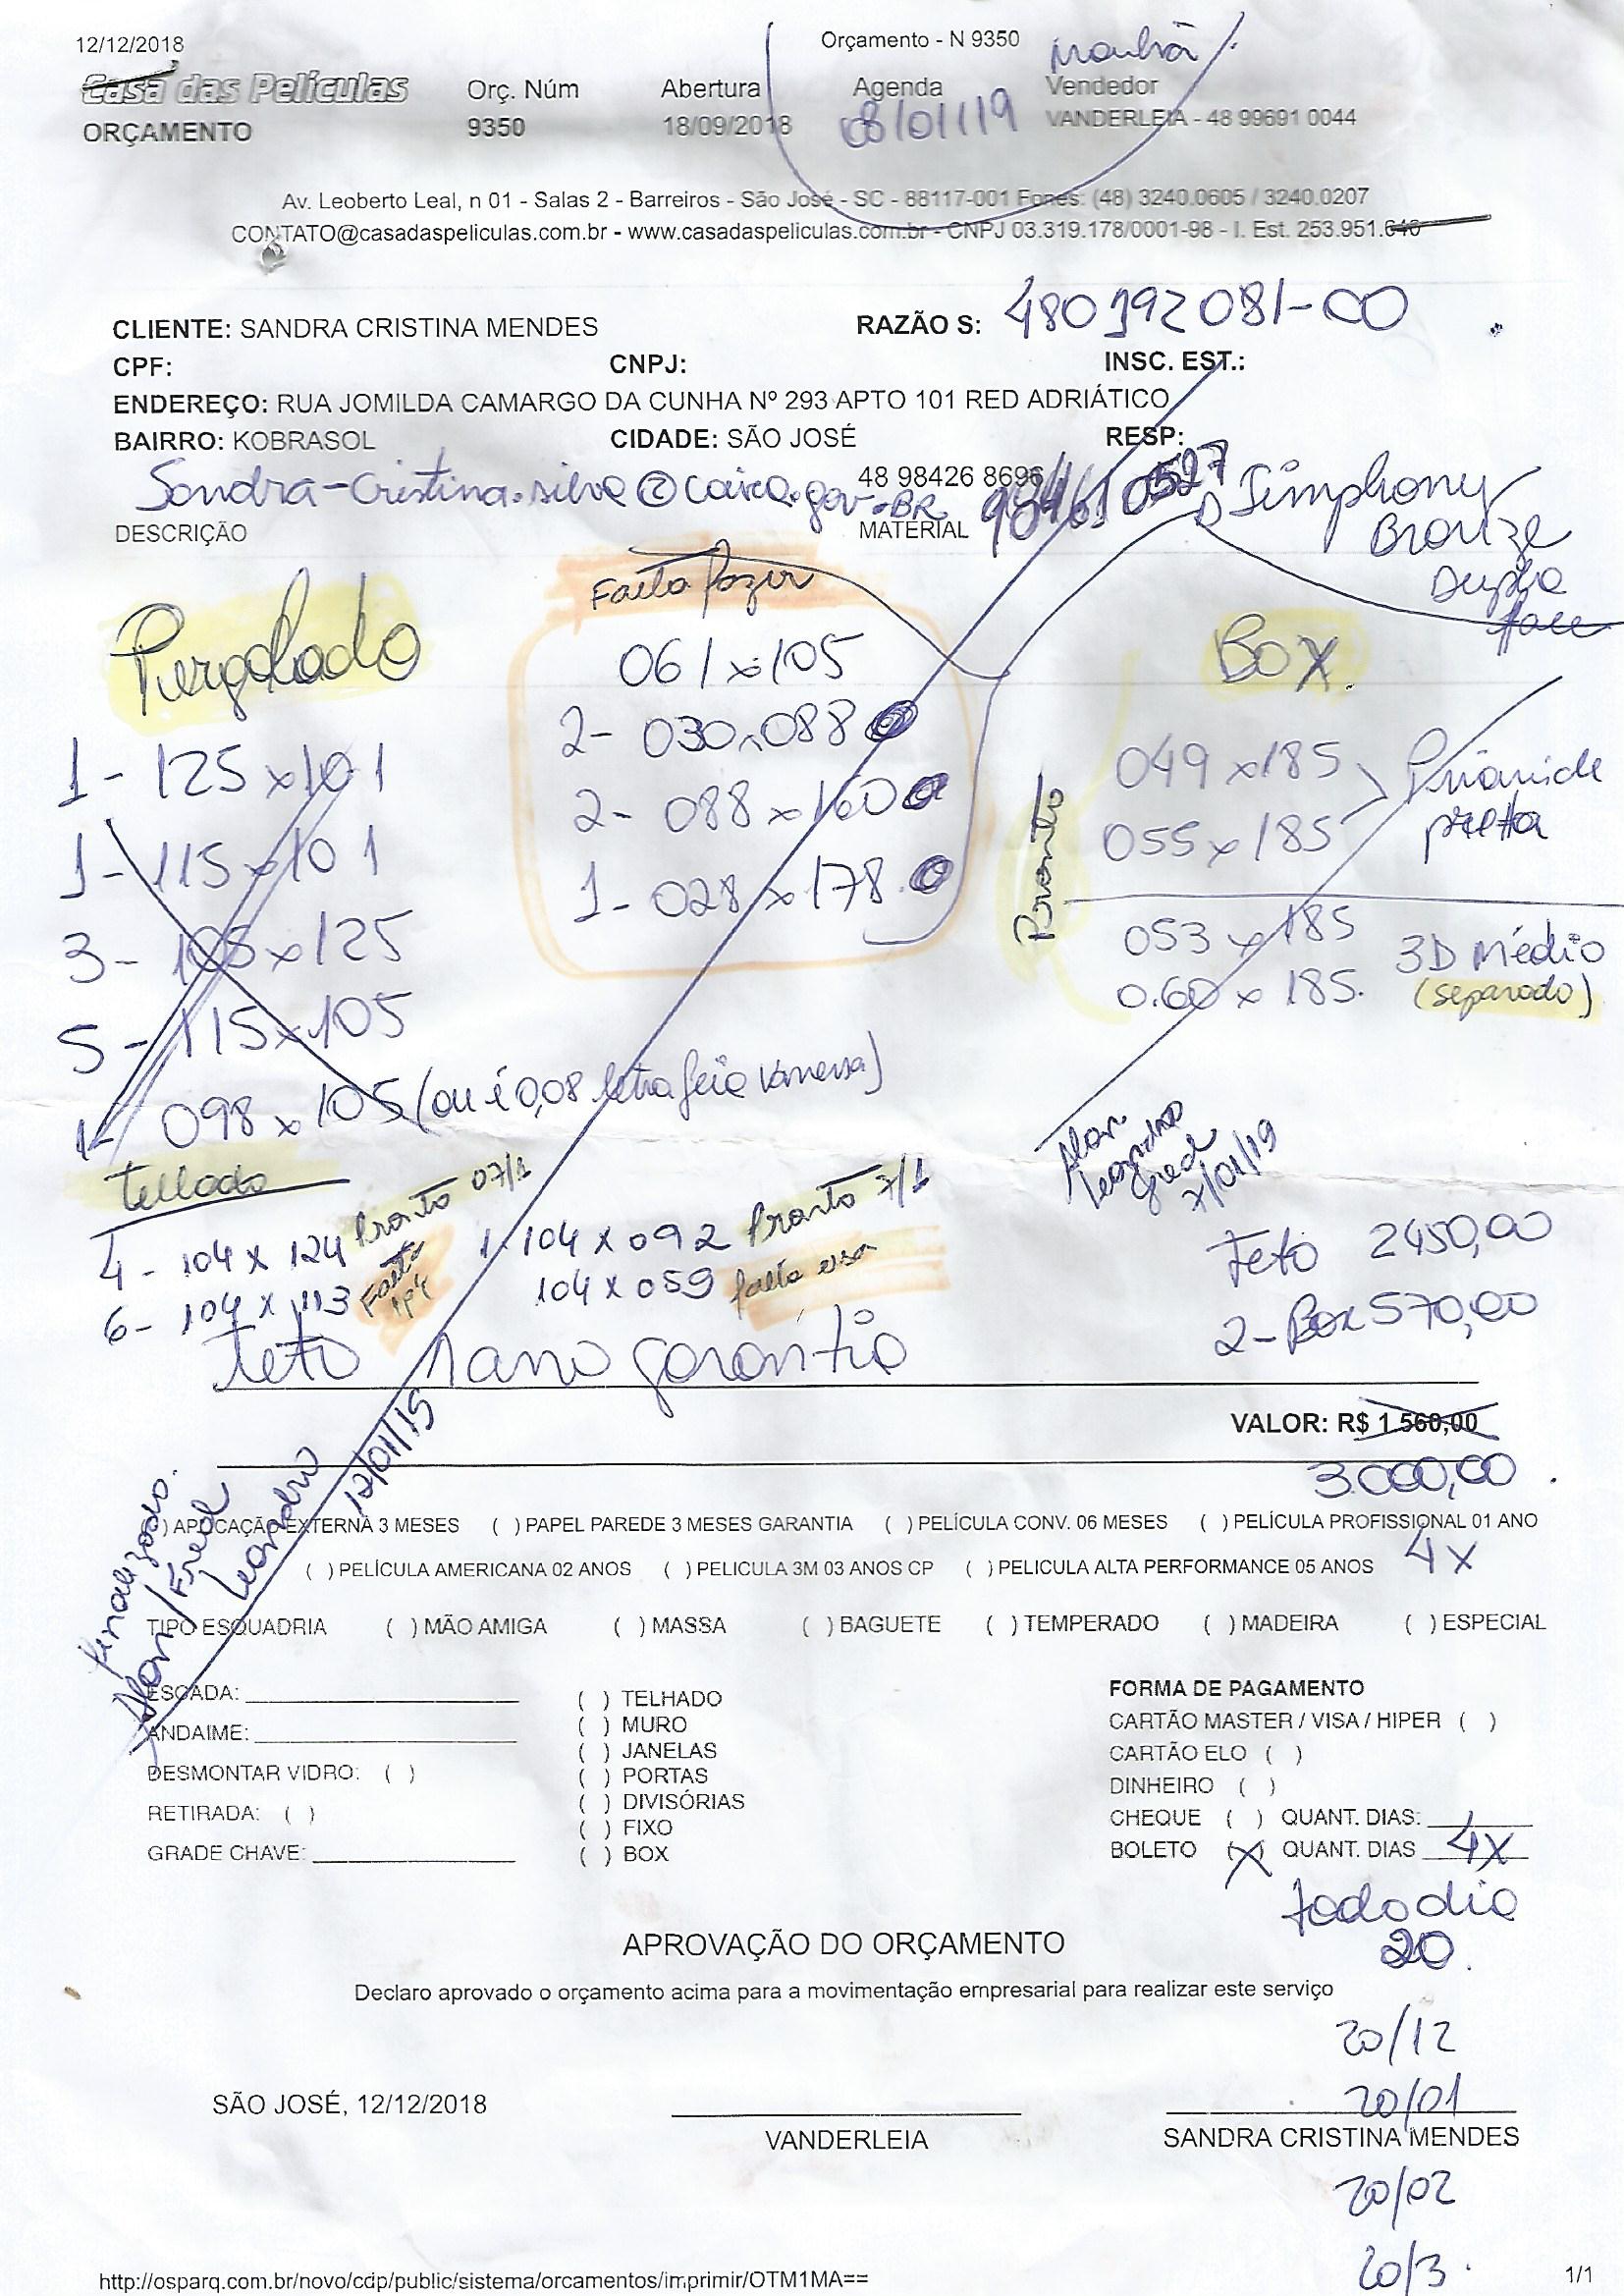 12/12/2018 Orçamento - N 9350 Manhã
Casa das Películas Orç. Núm Abertura Agenda Vendedor
ORÇAMENTO 9350 18/09/2018 08/01/19 VANDERLEIA - 48 99691 0044
Av. Leoberto Leal, n 01 - Salas 2 - Barreiros - São José - SC - 88117-001 Fones: (48) 3240.0605 / 3240.0207
CONTATO@casadaspeliculas.com.br - www.casadaspeliculas.com.br - CNPJ 03.319.178/0001-98 - I. Est. 253.951.640
CLIENTE: SANDRA CRISTINA MENDES RAZÃO S: 480392081-00
CPF: CNPJ: INSC. EST.:
ENDEREÇO: RUA JOMILDA CAMARGO DA CUNHA Nº 293 APTO 101 RED ADRIÁTICO
BAIRRO: KOBRASOL CIDADE: SÃO JOSÉ RESP:
Sandra-Cristina.silva@caixa.gov.BR 48 98426 8696
DESCRIÇÃO MATERIAL
Simphony
Bronze
Dupla
face
Falta fazer
Pergolado
061 x 105
BOX
2- 030x088
1- 125x101
049 x185
Pirâmide
2- 088 x 160
055 x 185
preta
1- 115x101
1- 028 x 178
Pronto
3- 108x125
053 x 185
3D Médio
5- 115x105
0.60 x 185.
(separado)
1- 098 x 105 (ou é 0,08 letra feia Vanessa)
Alan
Leandro
Fred
7/01/19
Tellado
4- 104 x 124 Pronto 07/1
1- 104 x 092 Pronto 7/1
6- 104 x 113 Falta
104 x 059 falta essa
Teto 2450,00
2- Box 570,00
teto 1 ano garantia
VALOR: R$ 1.560,00
3.000,00
( ) APLICAÇÃO EXTERNA 3 MESES ( ) PAPEL PAREDE 3 MESES GARANTIA ( ) PELÍCULA CONV. 06 MESES ( ) PELÍCULA PROFISSIONAL 01 ANO
( ) PELÍCULA AMERICANA 02 ANOS ( ) PELICULA 3M 03 ANOS CP ( ) PELICULA ALTA PERFORMANCE 05 ANOS 4x
Finalizado.
Alan/Fred
Leandro
12/01/19
TIPO ESQUADRIA ( ) MÃO AMIGA ( ) MASSA ( ) BAGUETE ( ) TEMPERADO ( ) MADEIRA ( ) ESPECIAL
ESCADA:
ANDAIME:
DESMONTAR VIDRO: ( )
RETIRADA: ( )
GRADE CHAVE:
( ) TELHADO
( ) MURO
( ) JANELAS
( ) PORTAS
( ) DIVISÓRIAS
( ) FIXO
( ) BOX
FORMA DE PAGAMENTO
CARTÃO MASTER / VISA / HIPER ( )
CARTÃO ELO ( )
DINHEIRO ( )
CHEQUE ( ) QUANT. DIAS:
BOLETO (X) QUANT. DIAS 4x
todo dia
20.
APROVAÇÃO DO ORÇAMENTO
Declaro aprovado o orçamento acima para a movimentação empresarial para realizar este serviço
20/12
SÃO JOSÉ, 12/12/2018
20/01
VANDERLEIA SANDRA CRISTINA MENDES
20/02
20/3.
http://osparq.com.br/novo/cdp/public/sistema/orcamentos/imprimir/OTM1MA== 1/1